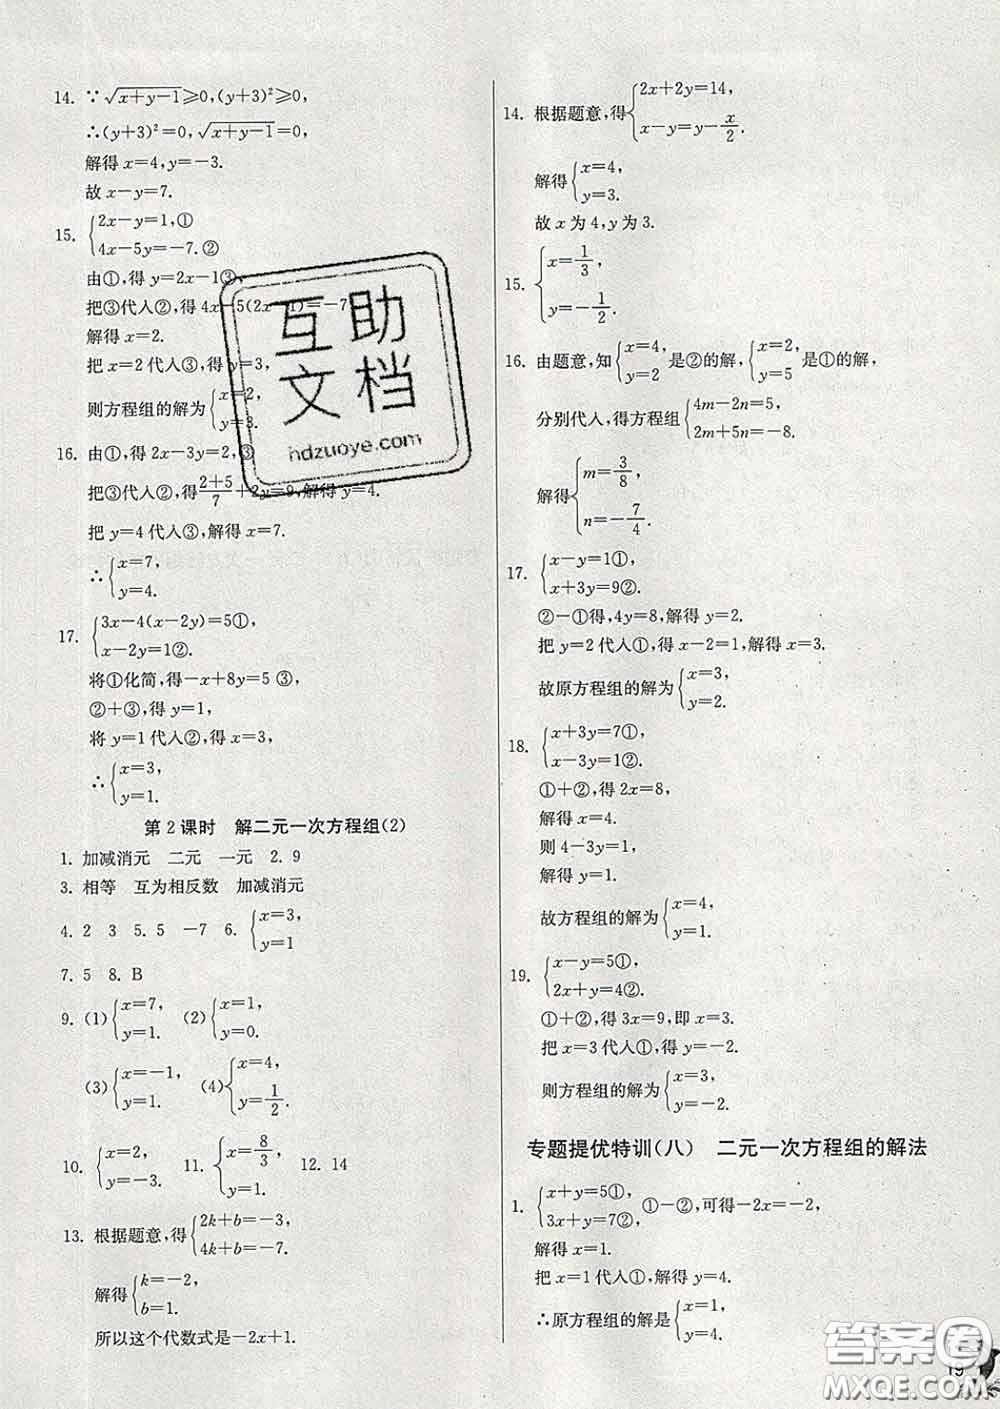 14. ∵√(x+y-1)≥0,(y+3)²≥0,
∴(y+3)²=0,√(x+y-1)=0,
解得 x=4,y=-3.
故 x-y=7.
15. {2x-y=1,①
4x-5y=-7.②
由①,得 y=2x-1③,
把③代入②,得 4x-5(2x-1)=-7
解得 x=2.
把 x=2 代入③,得 y=3,
则方程组的解为{x=2,
y=3.
16. 由①,得 2x-3y=2,③
把③代入②,得 (2+5)/7+2y=9,解得 y=4.
把 y=4 代入③,解得 x=7.
∴{x=7,
y=4.
17. {3x-4(x-2y)=5①,
x-2y=1②.
将①化简,得-x+8y=5 ③,
②+③,得 y=1,
将 y=1 代入②,得 x=3,
∴{x=3,
y=1.
第 2 课时 解二元一次方程组(2)
1. 加减消元 二元 一元 2. 9
3. 相等 互为相反数 加减消元
4. 2 3 5. 5 -7 6. {x=3,
y=1
7. 5 8. B
9. (1){x=7,
y=1. (2){x=1,
y=0.
(3){x=-1,
y=1. (4){x=4,
y=1/2.
10. {x=2,
y=-3. 11. {x=8/3,
y=1. 12. 14
13. 根据题意,得{2k+b=-3,
4k+b=-7.
解得{k=-2,
b=1.
所以这个代数式是-2x+1.
14. 根据题意,得{2x+2y=14,
x-y=y-x/2.
解得{x=4,
y=3.
故 x 为 4,y 为 3.
15. {x=1/3,
y=-1/2.
16. 由题意,知{x=4,
y=2 是②的解,{x=2,
y=5 是①的解,
分别代入,得方程组{4m-2n=5,
2m+5n=-8.
解得{m=3/8,
n=-7/4.
17. {x-y=1①,
x+3y=9②.
②-①得,4y=8,解得 y=2.
把 y=2 代入①,得 x-2=1,解得 x=3.
故原方程组的解为{x=3,
y=2.
18. {x+3y=7①,
x-3y=1②.
①+②,得 2x=8,
解得 x=4.
则 4-3y=1,
解得 y=1.
故方程组的解为{x=4,
y=1.
19. {x-y=5①,
2x+y=4②.
①+②,得 3x=9,即 x=3.
把 x=3 代入①,得 y=-2.
则方程组的解为{x=3,
y=-2.
专题提优特训(八) 二元一次方程组的解法
1. {x+y=5①,
3x+y=7②, ①-②,可得-2x=-2,
解得 x=1.
把 x=1 代入①,得 y=4.
∴原方程组的解是{x=1,
y=4.
互助
文档
hdzuoye.com
答案圈
MXQE.COM